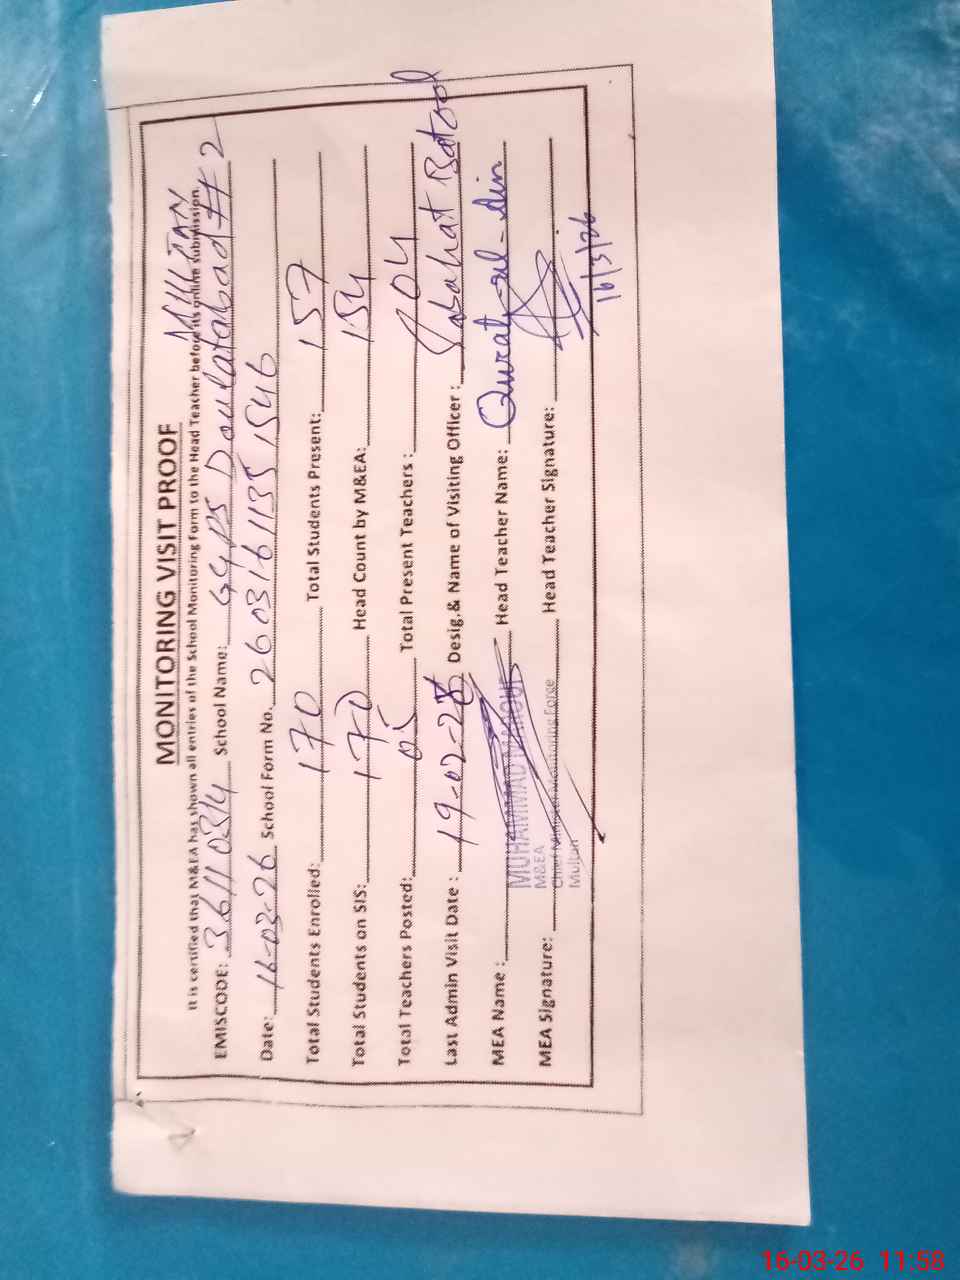 MONITORING VISIT PROOF MULTAN
It is certified that M&EA has shown all entries of the School Monitoring Form to the Head Teacher before its online submission.
EMISCODE: 36110314 School Name: GGPS Doulatabad # 2
Date: 16-03-26 School Form No. 2603161135 1546
Total Students Enrolled: 170 Total Students Present: 157
Total Students on SIS: 170 Head Count by M&EA: 154
Total Teachers Posted: 05 Total Present Teachers : 04
Last Admin Visit Date : 19-02- Desig.& Name of Visiting Officer : Sabahat Batool
MEA Name : Head Teacher Name: Qurat-ul-Ain
MUHAMMAD MAROUF
M&EA
MEA Signature: Chief Minister Monitoring Force Head Teacher Signature:
Multan
16/3/26
16-03-26 11:58